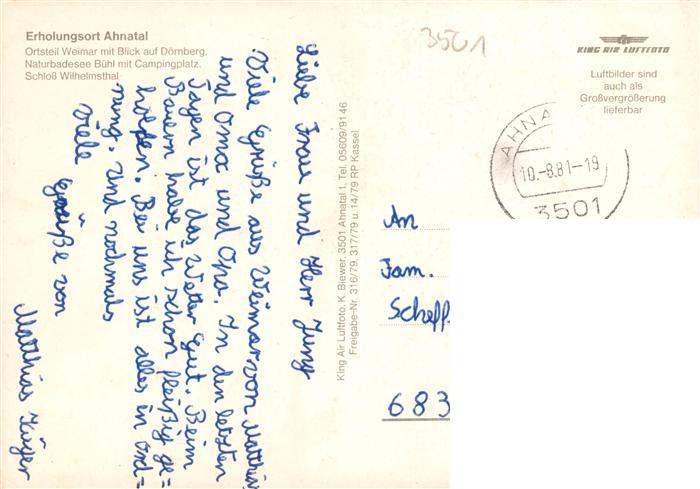 Erholungsort Ahnatal
Ortsteil Weimar mit Blick auf Dörnberg,
Naturbadesee Bühl mit Campingplatz.
Schloß Wilhelmsthal
3501
KING AIR LUFTFOTO
Luftbilder sind
auch als
Großvergrößerung
lieferbar
AHNA
10.-8.81-19
3501
Liebe Frau und Herr Jung
Viele Grüße aus Weimar von Matthias
und Oma und Opa. In den letzten
Tagen ist das Wetter gut. Beim
Bauern habe ich schon fleißig ge=
holfen. Bei uns ist alles in Ord=
nung. Und nochmals
Viele Grüße von
Matthias
King Air Luftfoto, K. Biewer, 3501 Ahnatal 1, Tel. 05609/9146
Freigabe-Nr. 316/79, 317/79 u. 14/79 RP Kassel
An
Fam.
Scheff.
683